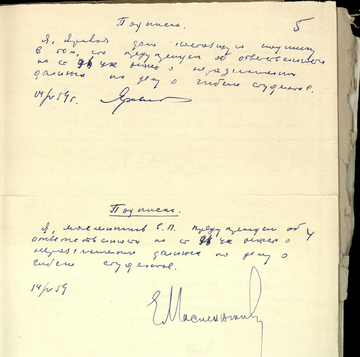 Подписка. 5
Я, Яровой дал настоящую подписку
в том, что предупрежден об ответственности
по ст 96 УК РСФСР о неразглашении
данных по делу о гибели студентов.
14/V 59 г.
Подписка.
Я, Масленников Е.П. предупрежден об
ответственности по ст 96 УК РСФСР о
неразглашении данных по делу о
гибели студентов.
14/V 59 ЕМасленников